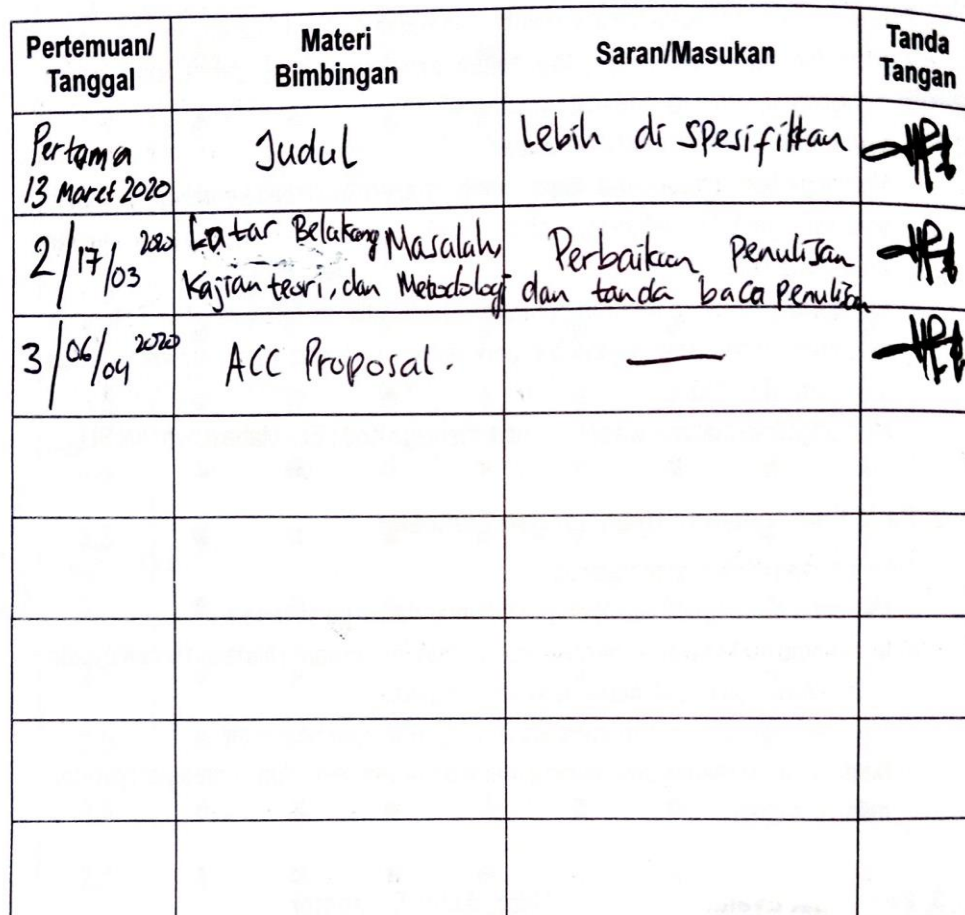 Pertemuan/
Tanggal
Materi
Bimbingan
Saran/Masukan
Tanda
Tangan
Pertama
13 Maret 2020
Judul
Lebih di spesifikkan
2/17/03 2020
Latar Belakang Masalah,
Kajian teori, dan Metodologi
Perbaikan Penulisan
dan tanda baca Penulisan
3/06/04 2020
ACC Proposal.